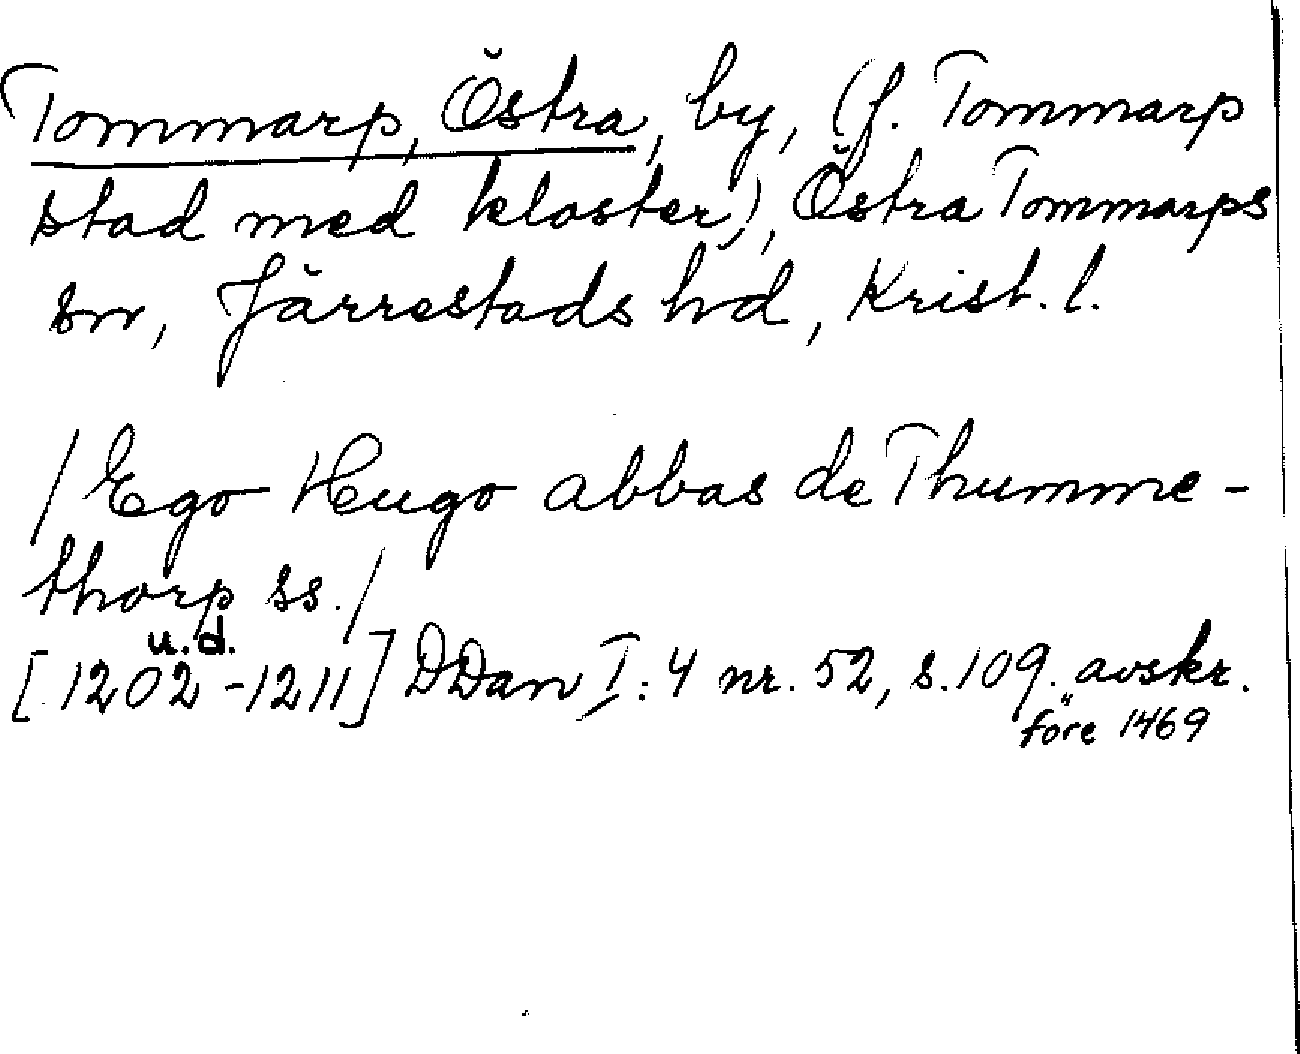 Tommarp, Östra, by, (f. Tommarp
stad med kloster), Östra Tommarps
sn, Järrestads hd, Krist. l.
/Ego Hugo abbas de Thumme-
thorp ss./
u.d.
[1202-1211] DDan I:4 nr. 52, s. 109. avskr.
före 1469